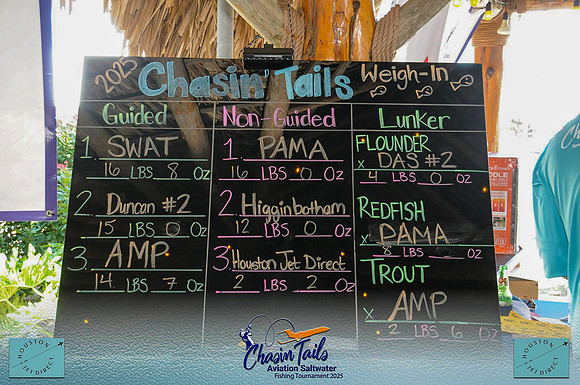 2025 Chasin' Tails Weigh-In
Guided
1. SWAT
16 LBS 8 Oz
2. Duncan #2
15 LBS 0 Oz
3. AMP
14 LBS 7 Oz
Non-Guided
1. PAMA
16 LBS 0 Oz
2. Higginbotham
12 LBS 0 Oz
3. Houston Jet Direct
2 LBS 2 Oz
Lunker
FLOUNDER
x DAS #2
4 LBS 0 Oz
REDFISH
x PAMA
8 LBS Oz
TROUT
x AMP
2 LBS 6 Oz
Chasin Tails
Aviation Saltwater
Fishing Tournament 2025
HOUSTON
JETDIRECT
HOUSTON
JETDIRECT